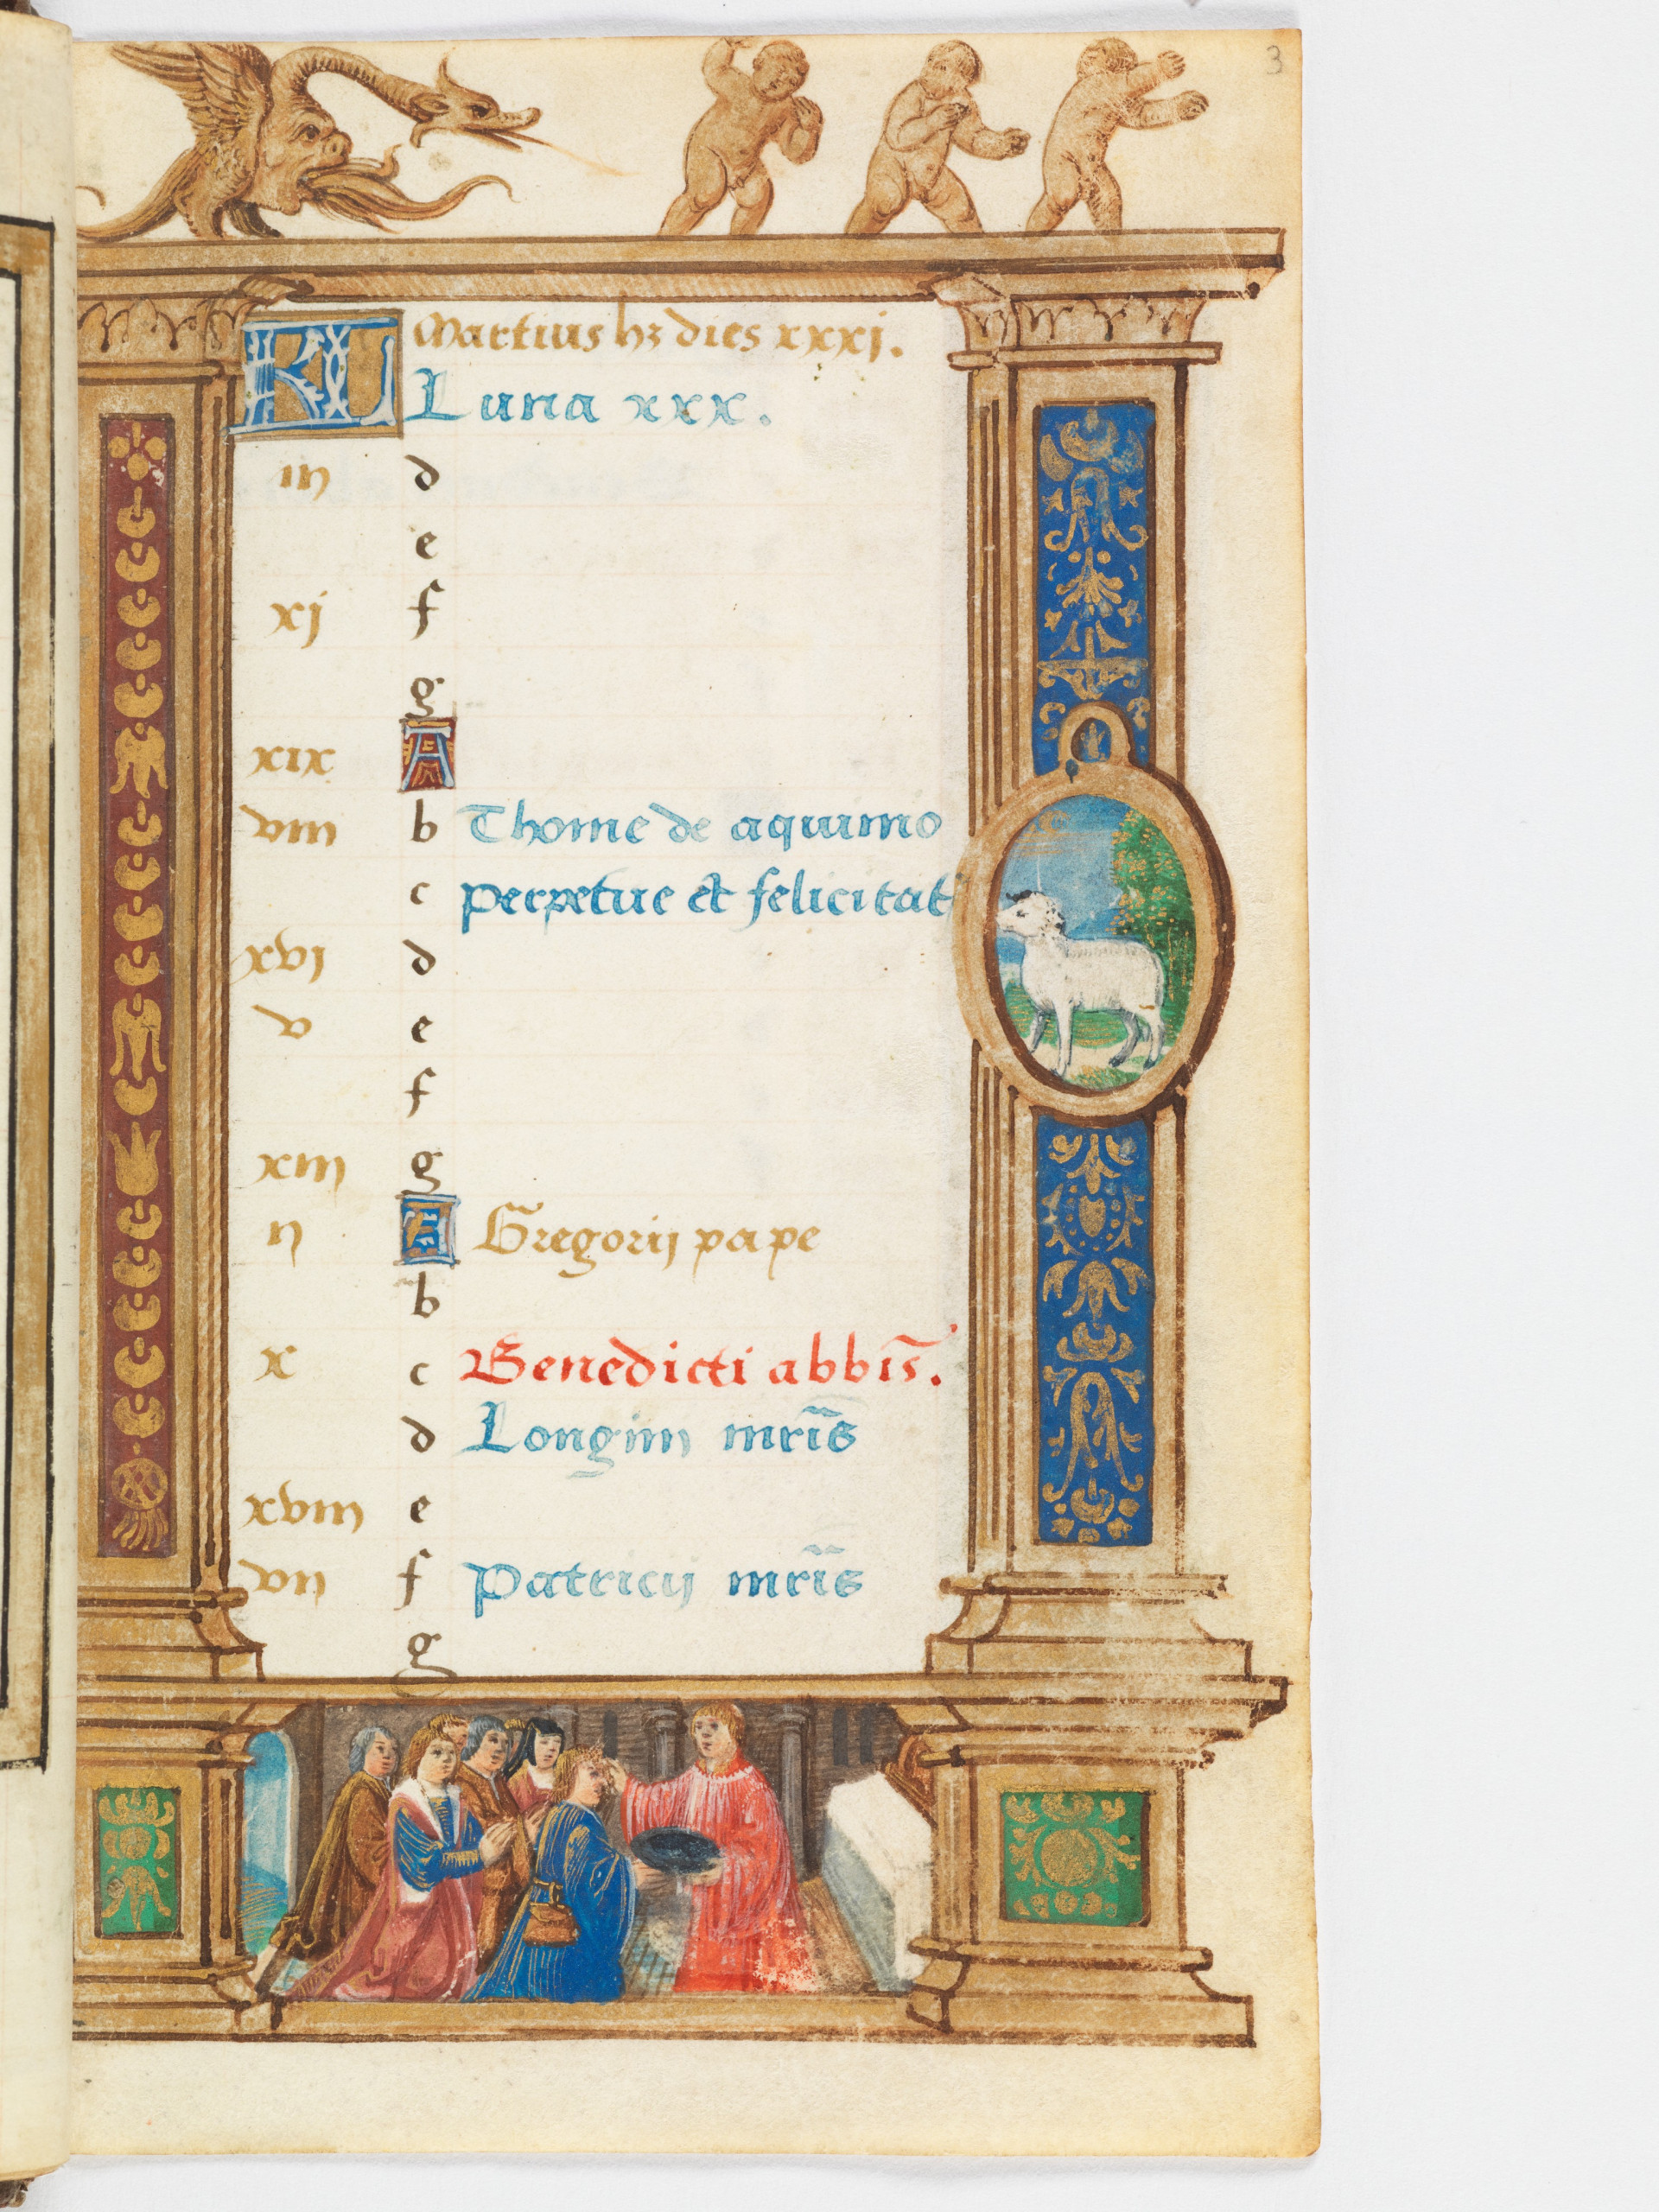 3
KL Martius hz dies xxxj.
Luna xxx.
iii d
e
xj f
g
xix A
viii b Thome de aquino
c perpetue et felicitat
xvj d
v e
f
xiii g
ii A Gregorij pape
b
x c Benedicti abbis̄.
d Longini mr̄is
xviii e
vii f Patricij mr̄is
g